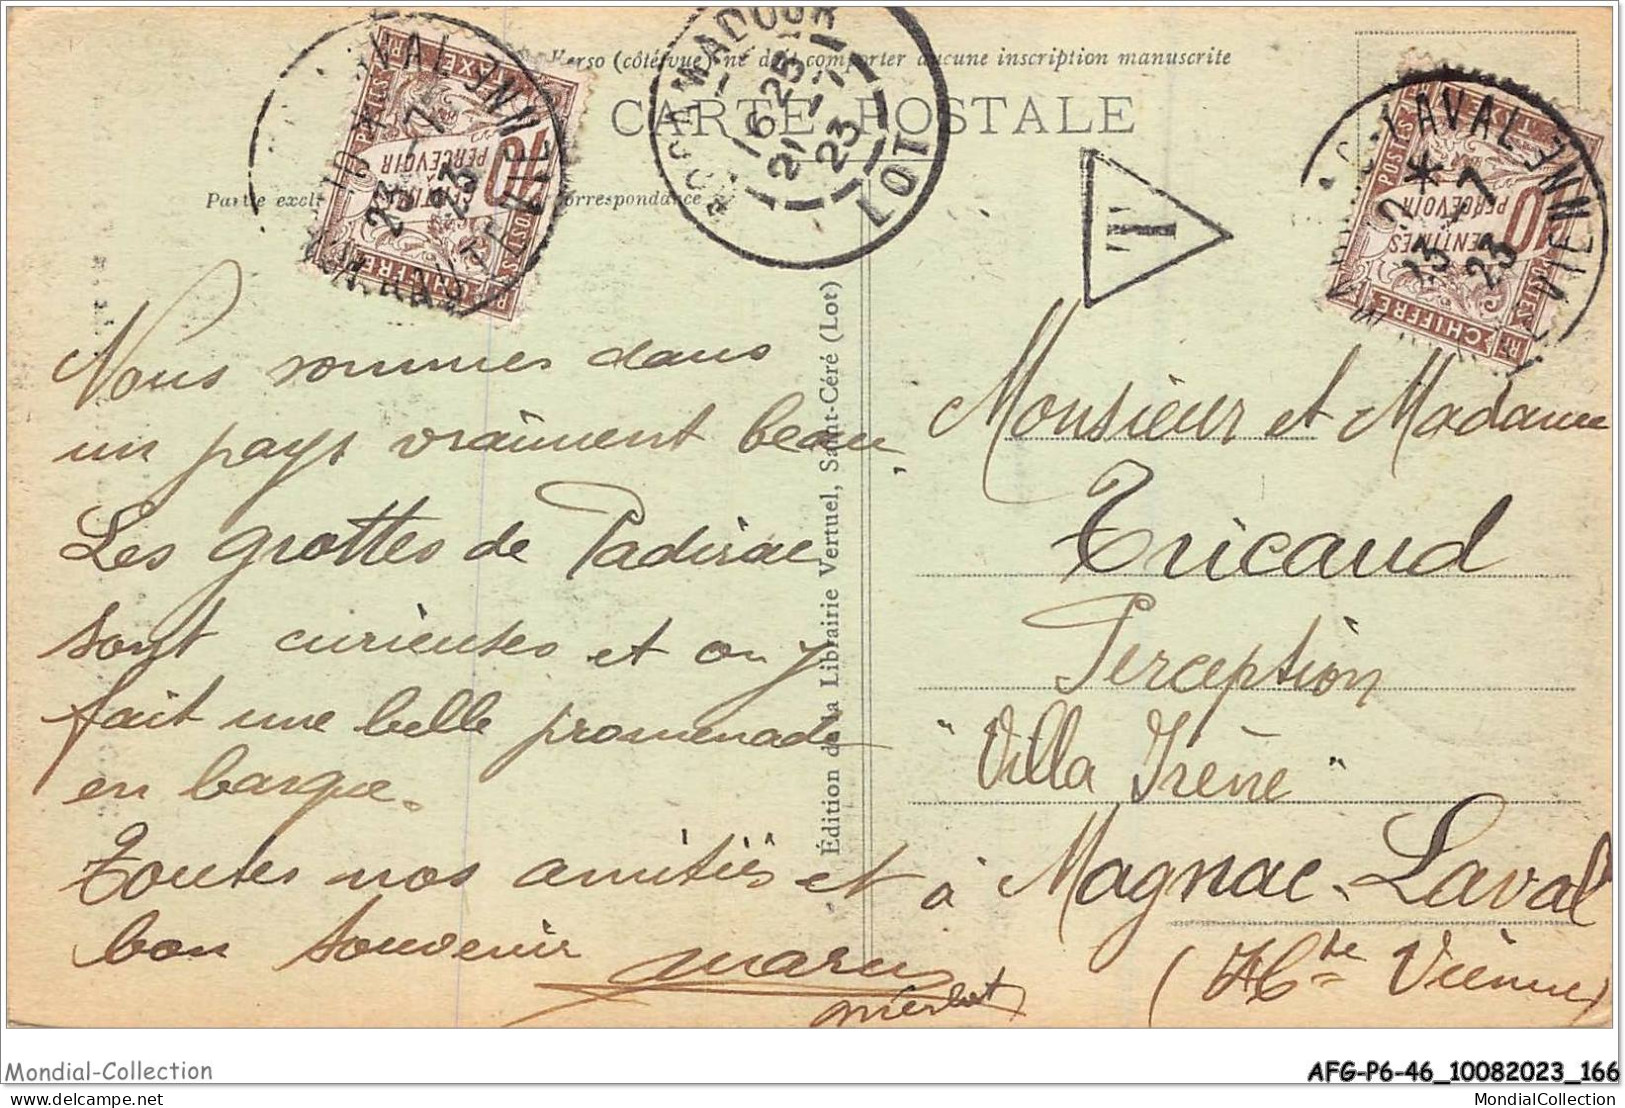 Verso (côté vue) ne doit comporter aucune inscription manuscrite
CARTE POSTALE
Partie excl
orrespondance
ROCAMADOUR
16 25
21 - 7
23
LOT
T
LAVAL
VIENNE
23 - 7
23
10
CENTIMES
PERCEVOIR
CHIFFRE
TAXE
POSTES
LAVAL
VIENNE
12 *
23 - 7
23
10
CENTIMES
PERCEVOIR
CHIFFRE
TAXE
POSTES
Nous sommes dans
un pays vraiment beau.
Les grottes de Padirac
sont curieuses et on y
fait une belle promenade
en barque.
Toutes nos amitiés et
bon souvenir
Édition de la Librairie Vertuel, Saint-Céré (Lot)
Monsieur et Madame
Tricaud
Perception
"Villa Irène"
à Magnac-Laval
(Hte Vienne)
Mondial-Collection
delcampe.net
AFG-P6-46_10082023_166
MondialCollection